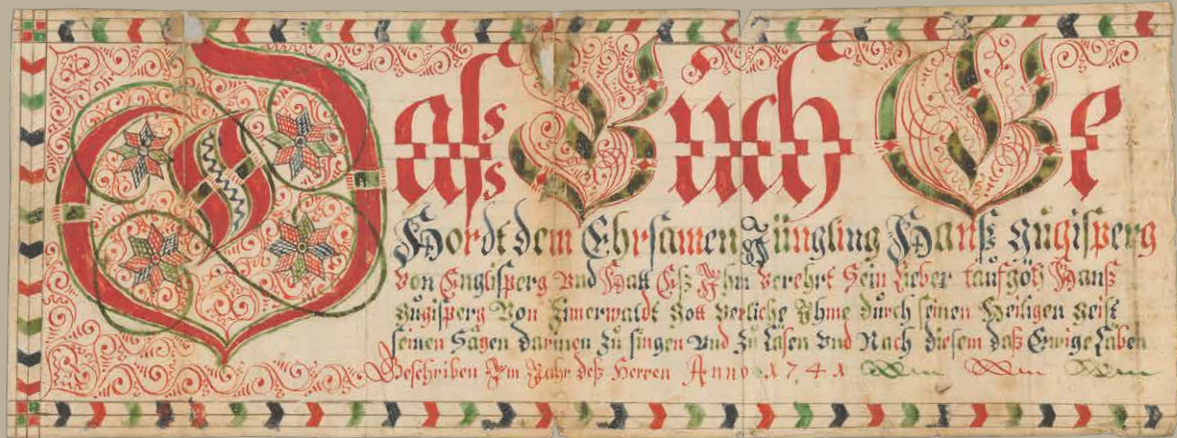 Dass Buch Ge
Hordt dem Ehrsamen Jüngling Hanß gugisperg
Von Englisperg Und Hatt Eß Ihm Verehrt Sein Lieber taufgöti Hanß
gugisperg Von Zimerwaldt Gott Verliche Ihme durch seinen Heiligen geist
seinen Sägen darinen zu singen Und zu Läsen Und Nach diesem daß Ewige Läben
Beschriben Im Jahr deß Herren Anno 1741